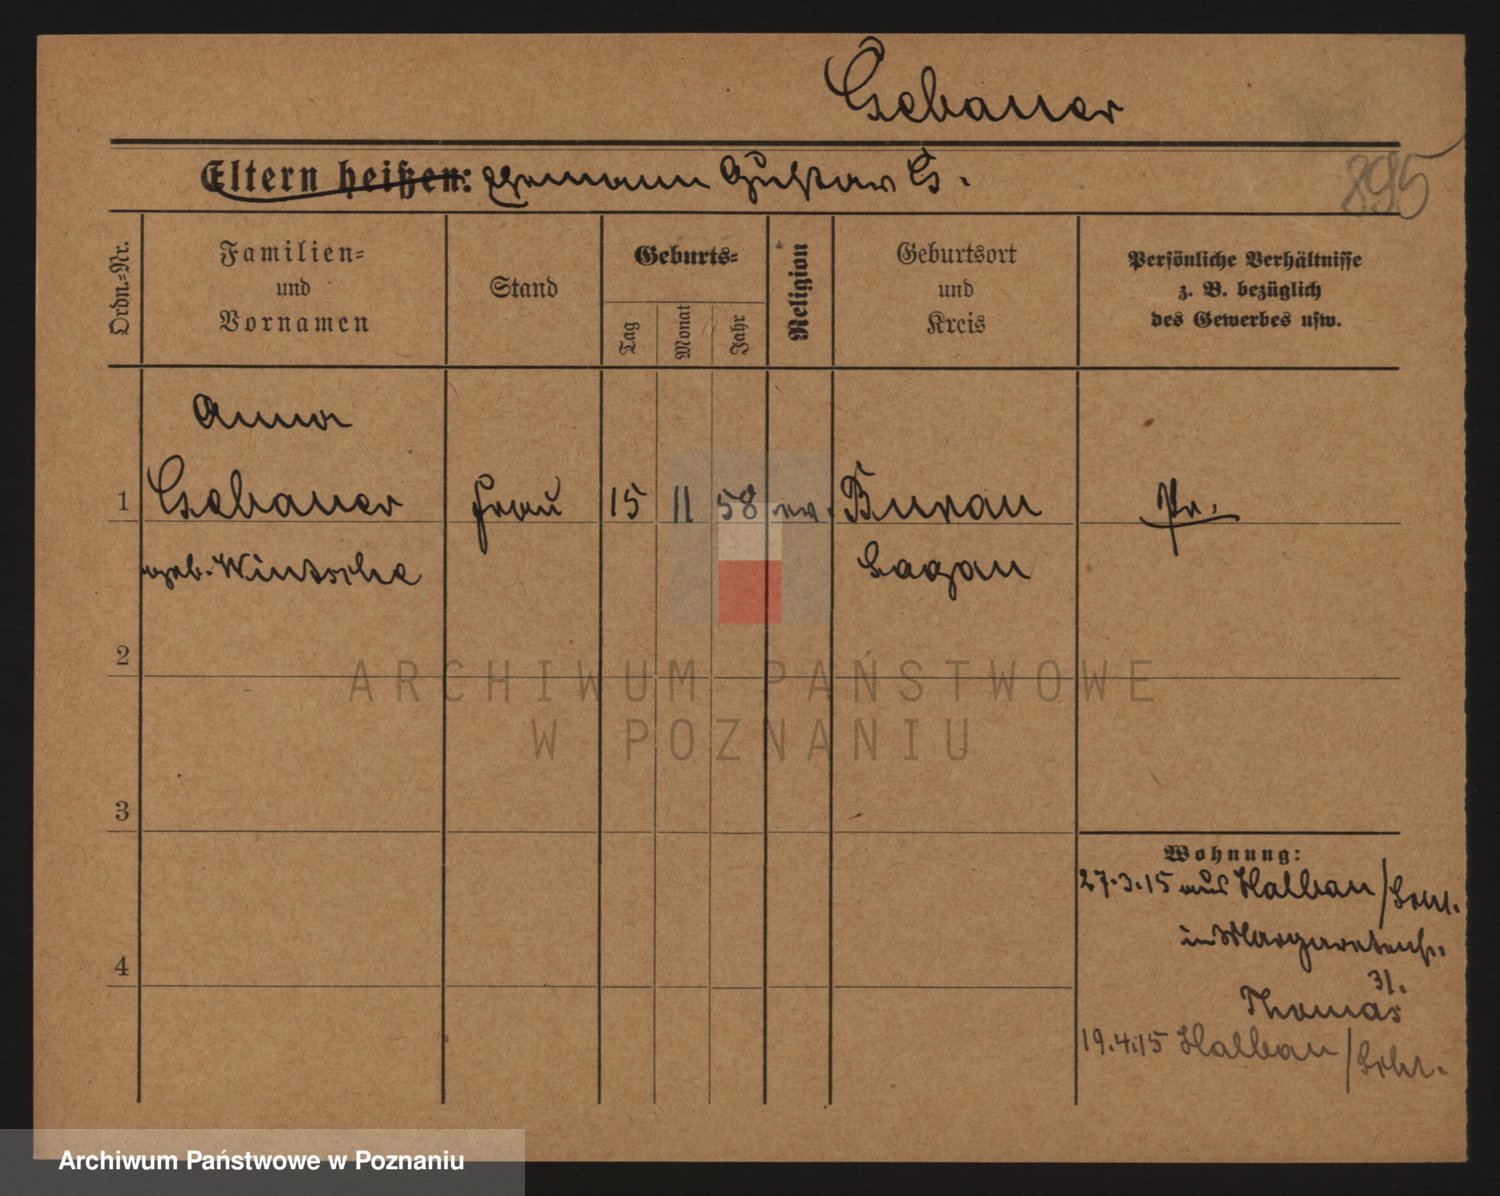 Gebauer
Eltern heißen: Hermann Gustav G.
895
Ordn.-Nr.
Familien-
und
Vornamen
Stand
Geburts-
Tag
Monat
Jahr
Religion
Geburtsort
und
Kreis
Persönliche Verhältnisse
z. B. bezüglich
des Gewerbes usw.
Anna
1 Gebauer Frau 15 11 58 ev. Bunau Pr.
geb. Wintsche Sagan
2
3
4
Wohnung:
27.3.15 aus Halbau / Schl.
in Margaretenst.
31.
Thomas
19.4.15 Halbau / Schl.
ARCHIWUM PAŃSTWOWE
W POZNANIU
Archiwum Państwowe w Poznaniu